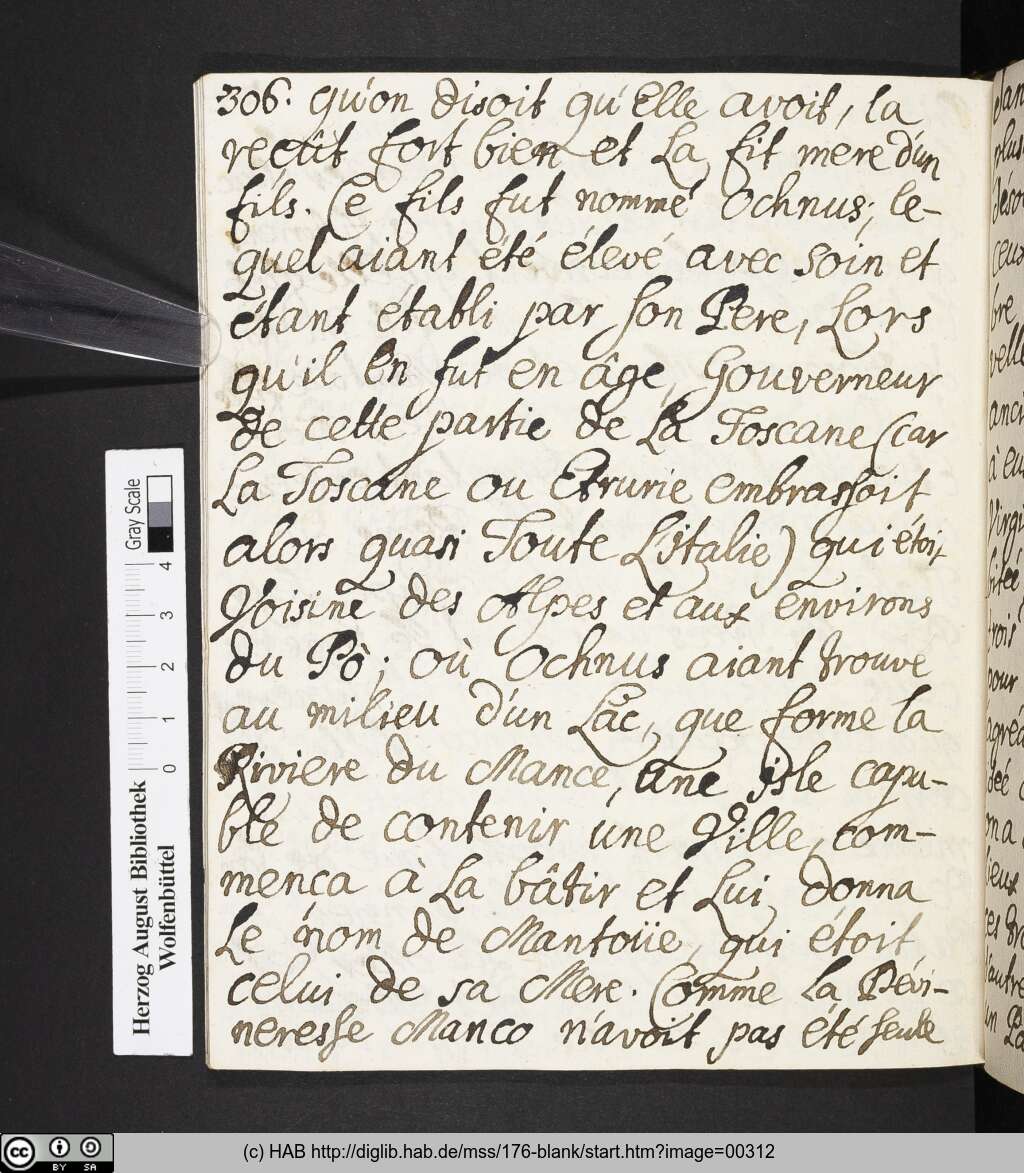 306. qu'on disoit qu'Elle avoit, la
reçût fort bien et La fit mere d'un
fils. Ce fils fut nommé Ochnus; le-
quel aiant été élevé avec soin et
étant établi par son Pere, Lors
qu'il En fut en âge, Gouverneur
de cette partie de La Toscane (car
La Toscane ou Etrurie embrassoit
alors quasi Toute L'Italie) qui étoit
Voisine des Alpes et aux environs
du Pô; où Ochnus aiant trouvé
au milieu d'un Lac, que forme la
Riviere du Mance, une isle capa-
ble de contenir une Ville, com-
mença à La bâtir et Lui donna
Le nom de Mantoüe, qui étoit
celui de sa Mere. Comme La Dévi-
neresse Manco n'avoit pas été seule
Gray Scale
0 1 2 3 4
Herzog August Bibliothek
Wolfenbüttel
(c) HAB http://diglib.hab.de/mss/176-blank/start.htm?image=00312
cc BY SA